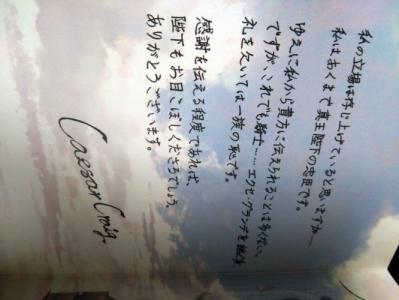 私の立場は存じ上げていると思いますが―
私はあくまで真王陛下の忠臣です。
ゆえに私から貴方に伝えられることは多くない、
ですが、これでも騎士…エクセ・グランデを継ぎ、
礼を欠いては一族の恥です。
感謝を伝える程度であれば、
陛下もお目こぼしくださるでしょう、
ありがとうございます。
Caesar Craig.